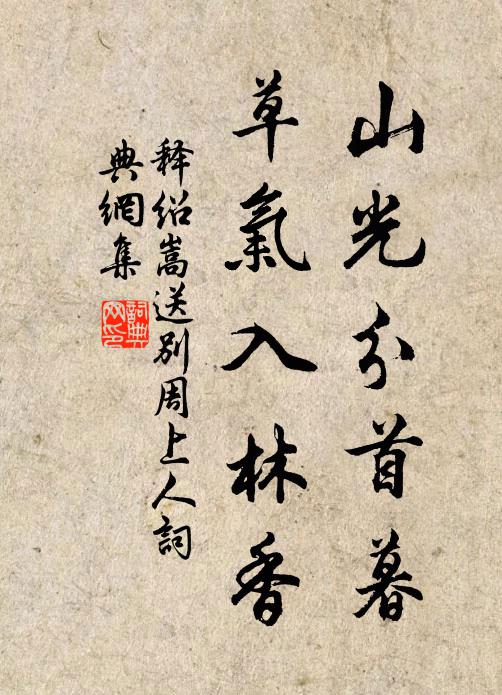 山光分首暮
草氣入林香
释绍嵩送別周上人詞
典網集
詞典網印